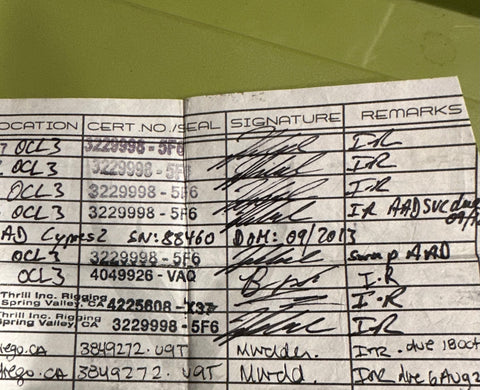 OCATION CERT.NO./SEAL SIGNATURE REMARKS
OCL3 3229998 - 5F6 I&R
OCL3 3229998 - 5F6 I&R
OCL3 3229998 - 5F6 I&R
OCL3 3229998 - 5F6 I&R AAD SVC due 09/
AD Cypres2 SN: 88460 DOM: 09/2013
OCL3 3229998 - 5F6 swap AAD
OCL3 4049926 - VAQ I.R
Thrill Inc. Rigging
Spring Valley, CA 4225608 - X37 I.R
Thrill Inc. Rigging
Spring Valley, CA 3229998 - 5F6 I&R
iego.CA 3849272 - U9T due 18 Oct
iego.CA 3849272 - U9T due 6 Aug 2